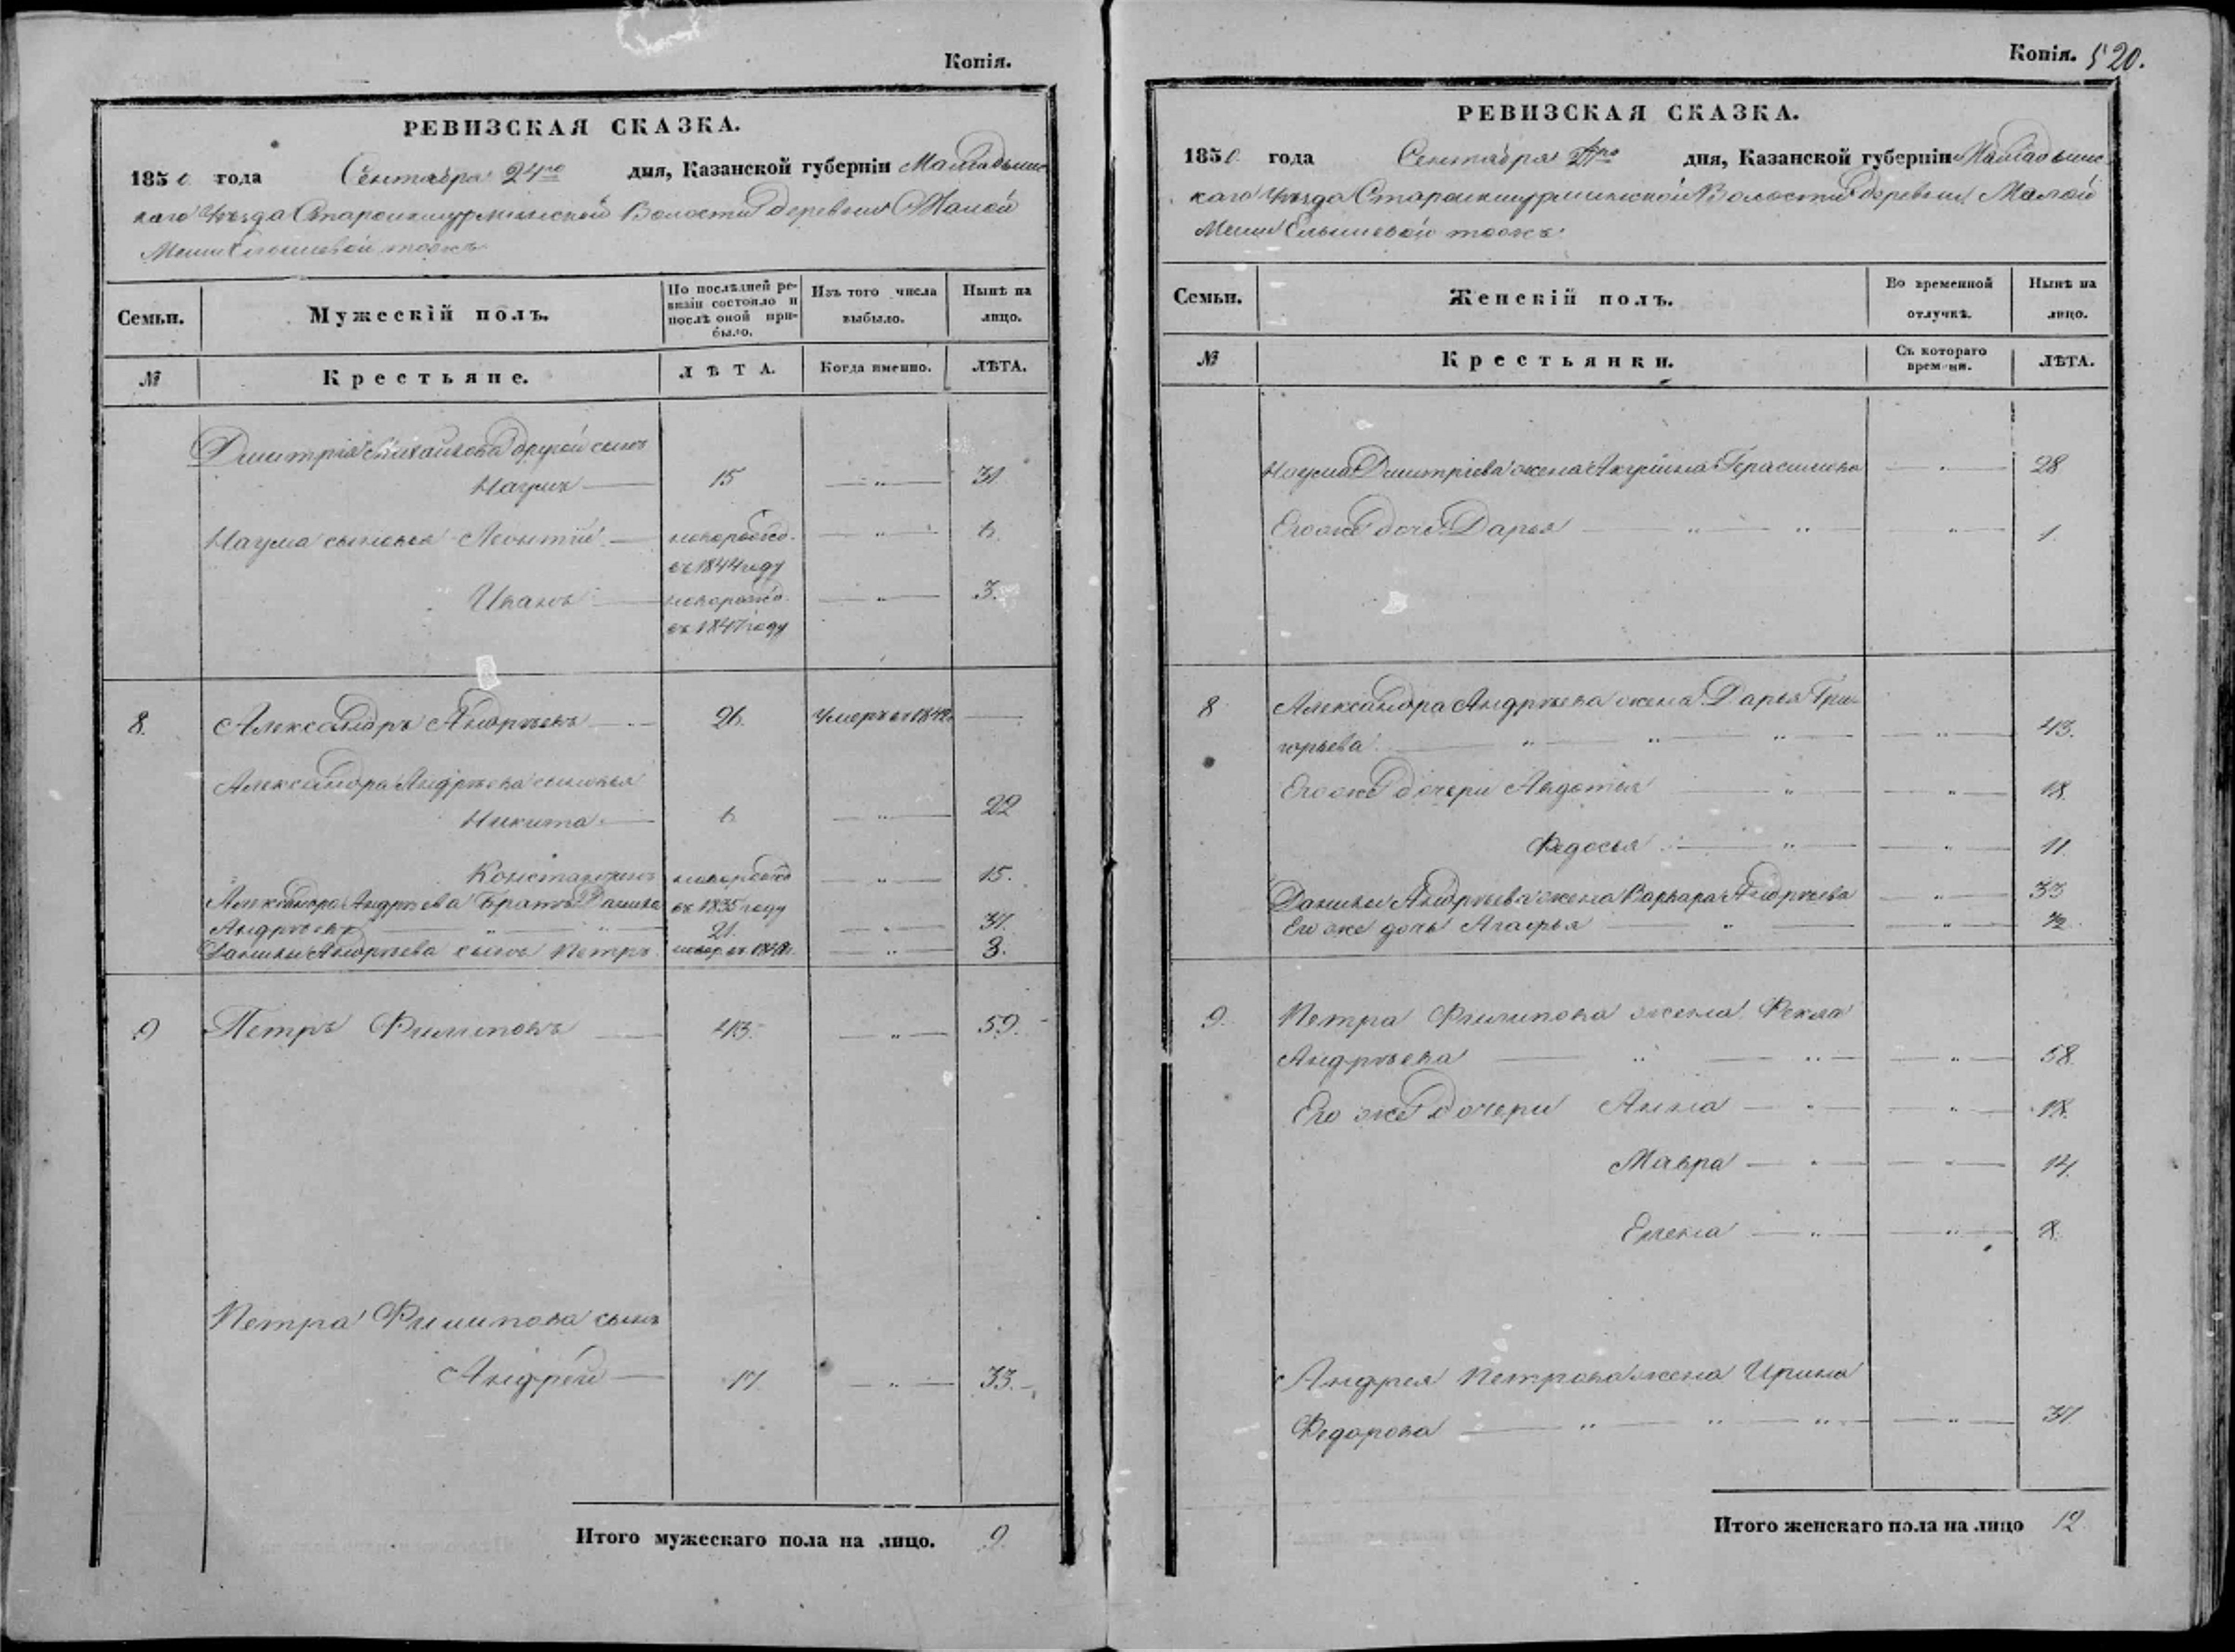 Копія.
РЕВИЗСКАЯ СКАЗКА.
1850 года Сентября 24го дня, Казанской губерніи Мамадышс
каго Уѣзда Староикшурминской Волости деревни Малой
Меши Елышевой тожъ
Семьи.
Мужескій полъ.
По послѣдней ре-
визіи состояло и
послѣ оной при-
было.
Изъ того числа
выбыло.
Нынѣ на
лицо.
№
Крестьяне.
ЛѢТА.
Когда именно.
ЛѢТА.
Дмитрія Михайлова другой сынъ
Наумъ — 15 — „ — 31
Наума сыновья Леонтій — новорожд. — „ — 6
въ 1844 году
Иванъ — новорожд. — „ — 3.
въ 1847 году
8. Александръ Андрѣевъ — 26. Умеръ въ 1842 —
Александра Андрѣева сыновья
Никита — 6 — „ — 22
Константинъ новорожд — „ — 15.
въ 1835 году
Александра Андрѣева Братъ Данила
Андрѣевъ — „ — „ — 21. — „ — 37.
Данилы Андрѣева сынъ Петръ — „ — 3.
9 Петръ Филиповъ — 43. — „ — 59.
Петра Филипова сынъ
Андрей — 17 — „ — 33.
Итого мужескаго пола на лицо. 9.
Копія. 520.
РЕВИЗСКАЯ СКАЗКА.
1850 года Сентября 24го дня, Казанской губерніи Мамадышс
каго Уѣзда Староикшурминской Волости деревни Малой
Меши Елышевой тожъ.
Семьи.
Женскій полъ.
Во временной
отлучкѣ.
Нынѣ на
лицо.
№
Крестьянки.
Съ котораго
времени.
ЛѢТА.
Наума Дмитріева жена Акулина Герасимова — „ — 28
Его же дочь Дарья — „ — „ — „ — 1.
8 Александра Андрѣева жена Дарья Гри-
горьева — „ — „ — „ — „ — 43.
Его же дочери Авдотья — „ — „ — 18.
Федосья — „ — „ — 11.
Данилы Андрѣева жена Варвара Андрѣева — „ — 33
Его же дочь Агафья — „ — „ — ½
9. Петра Филипова жена Фекла
Андрѣева — „ — „ — „ — 58.
Его же дочери Анна — „ — „ — 18.
Мавра — „ — „ — 14.
Елена — „ — „ — 8.
Андрея Петрова жена Ирина
Федорова — „ — „ — „ — „ — 37.
Итого женскаго пола на лицо 12